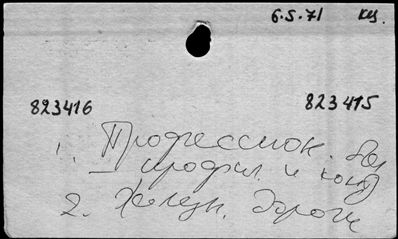 6.5.71 кц.
823416 823415
1. Профессион. бол
– профил. и конф
2. Железн. дороги